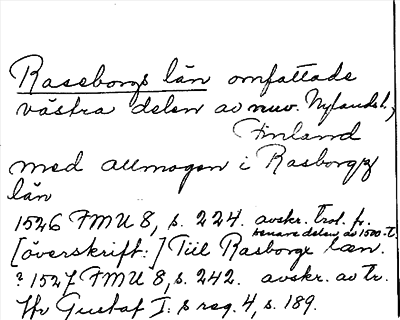 Raseborgs län omfattade
västra delen av nuv. Nylands l.,
Finland
med allmogen i Rasborgx
län
1526 FMU 8, s. 224. avskr. trol. fr.
senare delen av 1500-t.
[överskrift:] Till Rasborgx læn.
? 1527 FMU 8, s. 242. avskr. av tr.
Hr Gustaf I:s reg. 4, s. 189.